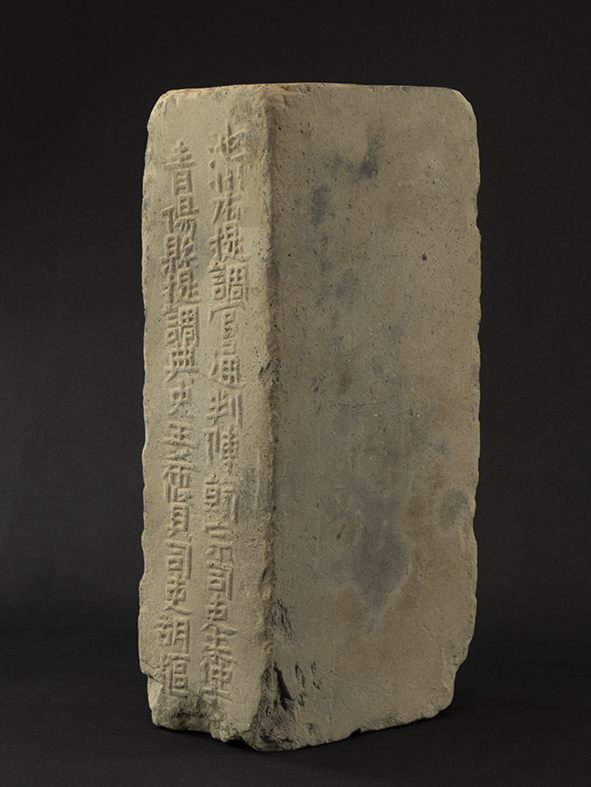 池州府提調官通判傅 司吏朱仲
青陽縣提調典史王 司吏胡